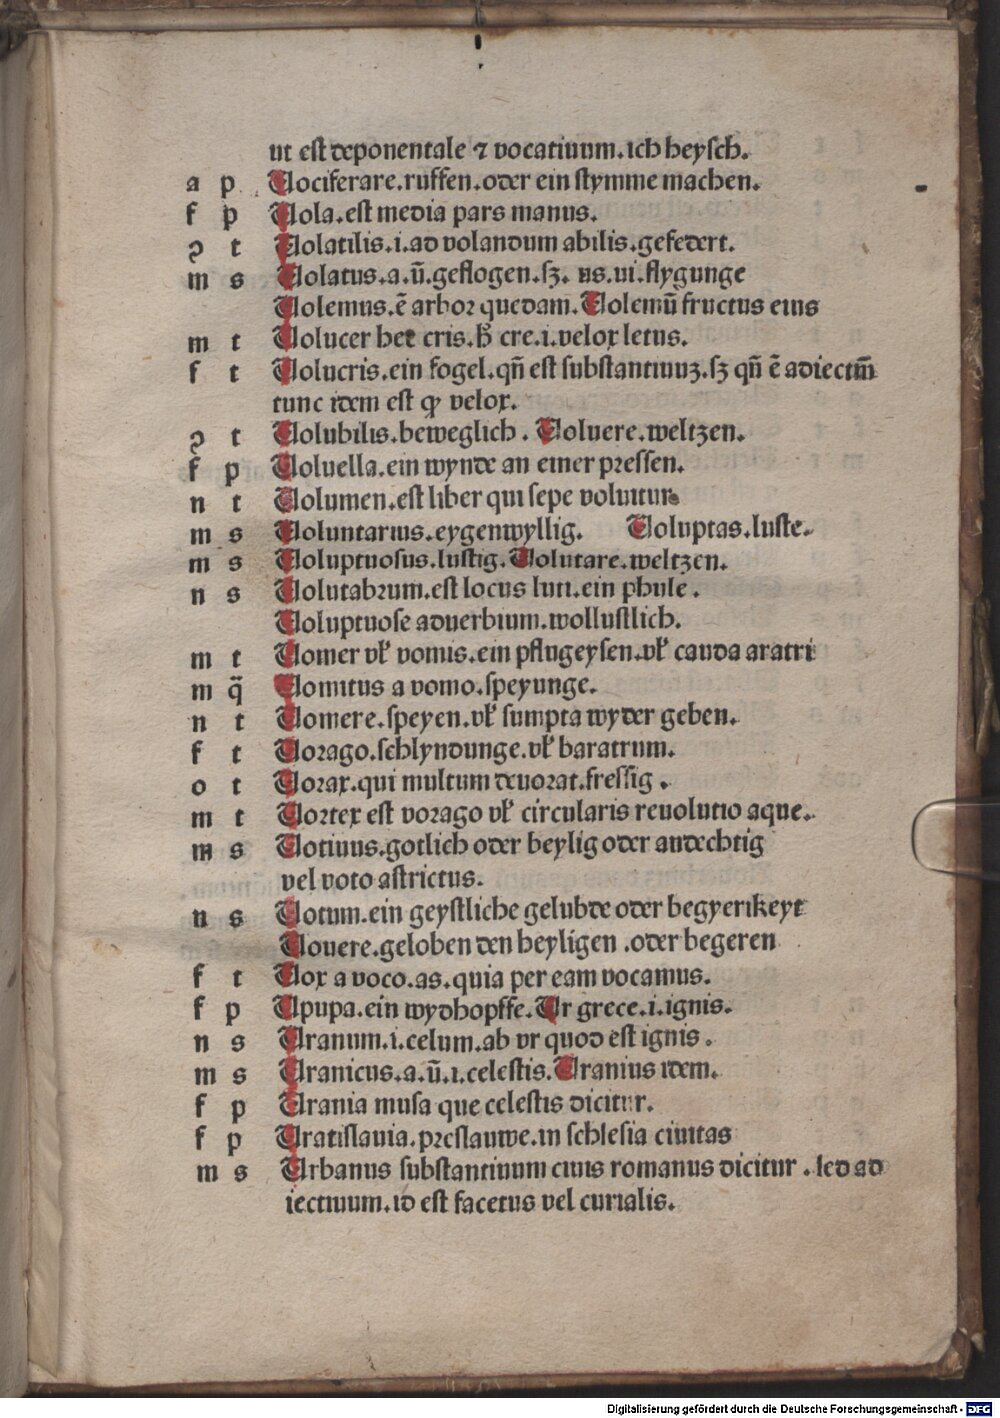 ut est deponentale ⁊ vocatiuum. ich heysch.
a p Vociferare. ruffen. oder ein stymme machen.
f p Vola. est media pars manus.
ꝯ t Volatilis. i. ad volandum abilis. gefedert.
m s Volatus. a. ū. geflogen. sꝫ. us. ui. flygunge
Volemus. ē arbor quedam. Volemū fructus eius
m t Volucer hec cris. h̄ cre. i. velox letus.
f t Volucris. ein fogel. qn̄ est substantiuuꝫ. sꝫ qn̄ ē adiectiuū
tunc idem est qꝫ velox.
ꝯ t Volubilis. beweglich. Voluere. weltzen.
f p Voluella. ein wynde an einer pressen.
n t Volumen. est liber qui sepe voluitur.
m s Voluntarius. eygenwyllig. Voluptas. luste.
m s Voluptuosus. lustig. Volutare. weltzen.
n s Volutabrum. est locus luti. ein phule.
Voluptuose aduerbium. wollustlich.
m t Vomer vl̄ vomis. ein pflugeysen. vl̄ cauda aratri
m q̄ Vomitus a vomo. speyunge.
n t Vomere. speyen. vl̄ sumpta wyder geben.
f t Vorago. schlyndunge. vl̄ baratrum.
o t Vorax. qui multum deuorat. fressig.
m t Vortex est vorago vl̄ circularis reuolutio aque.
m s Votiuus. gotlich oder heylig oder andechtig
vel voto astrictus.
n s Votum. ein geystliche gelubde oder begyerikeyt
Vouere. geloben den heyligen. oder begeren
f t Vox a voco. as. quia per eam vocamus.
f p Vpupa. ein wydhopffe. Vr grece. i. ignis.
n s Vranum. i. celum. ab vr quod est ignis.
m s Vranicus. a. ū. i. celestis. Vranius idem.
f p Vrania musa que celestis dicitur.
f p Vratislauia. preslauwe. in schlesia ciuitas
m s Vrbanus substantiuum ciuis romanus dicitur. sed ad
iectiuum. id est facetus vel curialis.
Digitalisierung gefördert durch die Deutsche Forschungsgemeinschaft - DFG